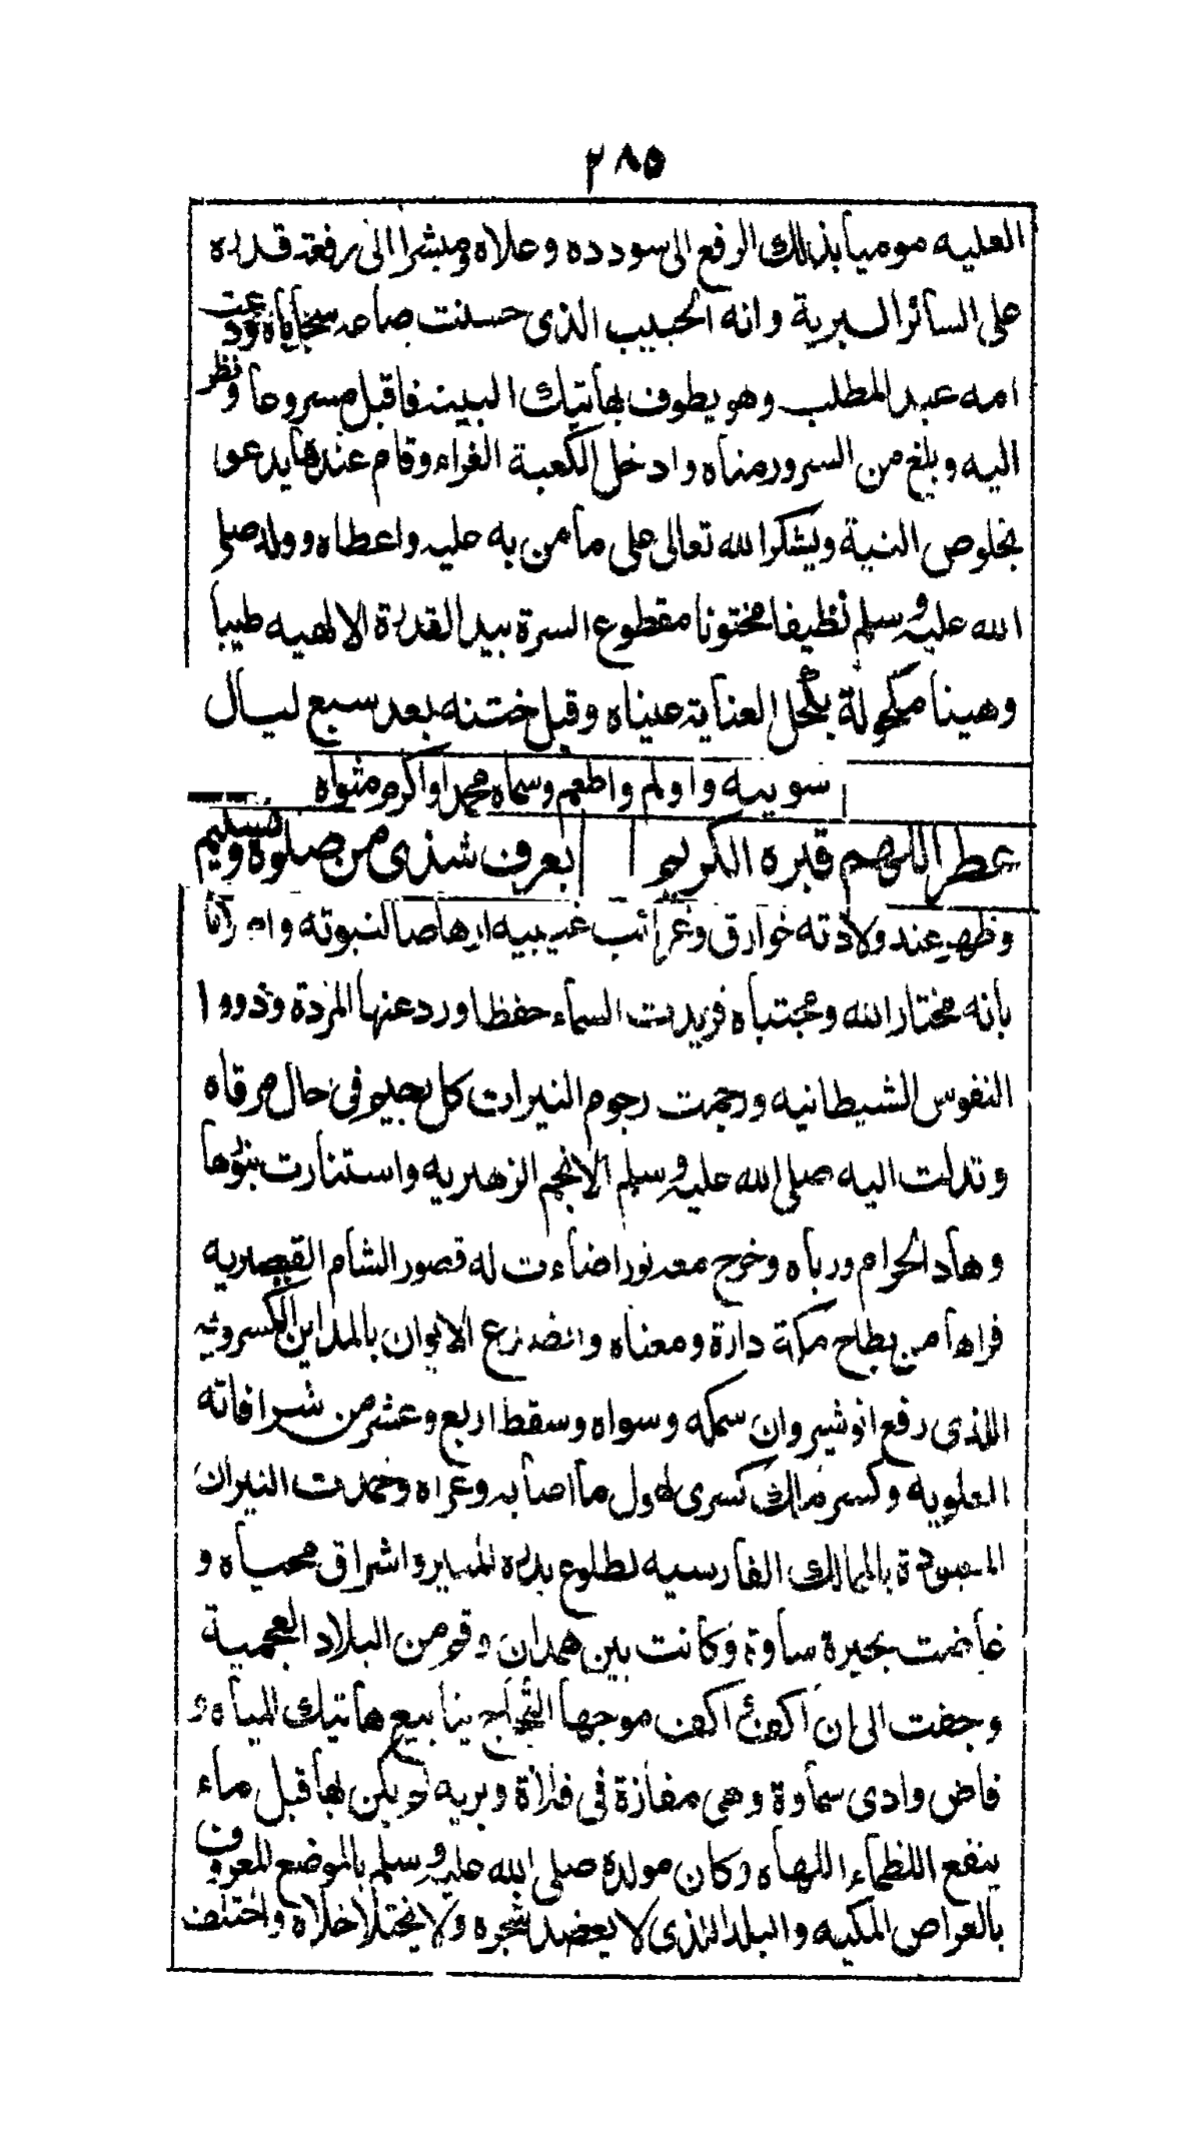 ٢٨٥
العليه موميأ بذالك الرفع الى سودده وعلاه ومبشرا الى رفعة قدره
على السائر البرية وانه الحبيب الذى حسنت صاعه سجاياه ودعت
امه عبد المطلب وهو يطوف بهاتيك البيت فاقبل مسروعا ونظر
اليه وبلغ من السرور مناه وادخل الكعبة الغراء وقام عندها يدعو
بخلوص النية ويشكرا لله تعالى على مامن به عليه واعطاه وولد صلى
الله عليه وسلم نظيفا مختونا مقطوع السرة بيد القدرة الالهيه طيبا
وهينا مكحولة بكحل العناية عيناه وقبل ختنه بعد سبع ليال
سويه واولم واطعم وسماه محمدا واكرم مثواه
عطر اللهم قبره الكريم بعرف شذى من صلوة وتسليم
وظهر عند ولادته خوارق وغرائب غيبيه ارهاصا لنبوته
بانه مختار الله ومجتباه فزيدت السماء حفظا ورد عنها المردة وذووا
النفوس الشيطانيه ورجمت رجوم النيرات كل رجيم فى حال مرقاه
وتدلت اليه صلى الله عليه وسلم الانجم الزهريه واستنارت بنورها
وهاد الحرام ورباه وخرج معه نور اضاءت له قصور الشام القيصريه
فراها من بطاح مكة دارة ومعناه وانصدع الايوان بالمداين الكسرويه
اللذى رفع انوشيروان سمكه وسواه وسقط اربع وعشر من شرافاته
العلويه وكسر ملك كسرى لهول ما اصابه وعراه وخمدت النيران
المعبودة بالممالك الفارسيه لطلوع بدره المنير واشراق محياه و
غاضت بحيرة ساوة وكانت بين همدان وقم من البلاد العجمية
وجفت الى ان اكف اكف موجها الثجاج ينابيع هاتيك المياه و
فاض وادى سماوة وهى مفازة فى فلاة وبريه لم يكن بها قبل ماء
ينفع اللظماء اللهاه وكان مولده صلى الله عليه وسلم بالموضع المعروف
بالعراص المكيه والبلد اللذى لا يعضد شجره ولا يختلا خلاه واختلف